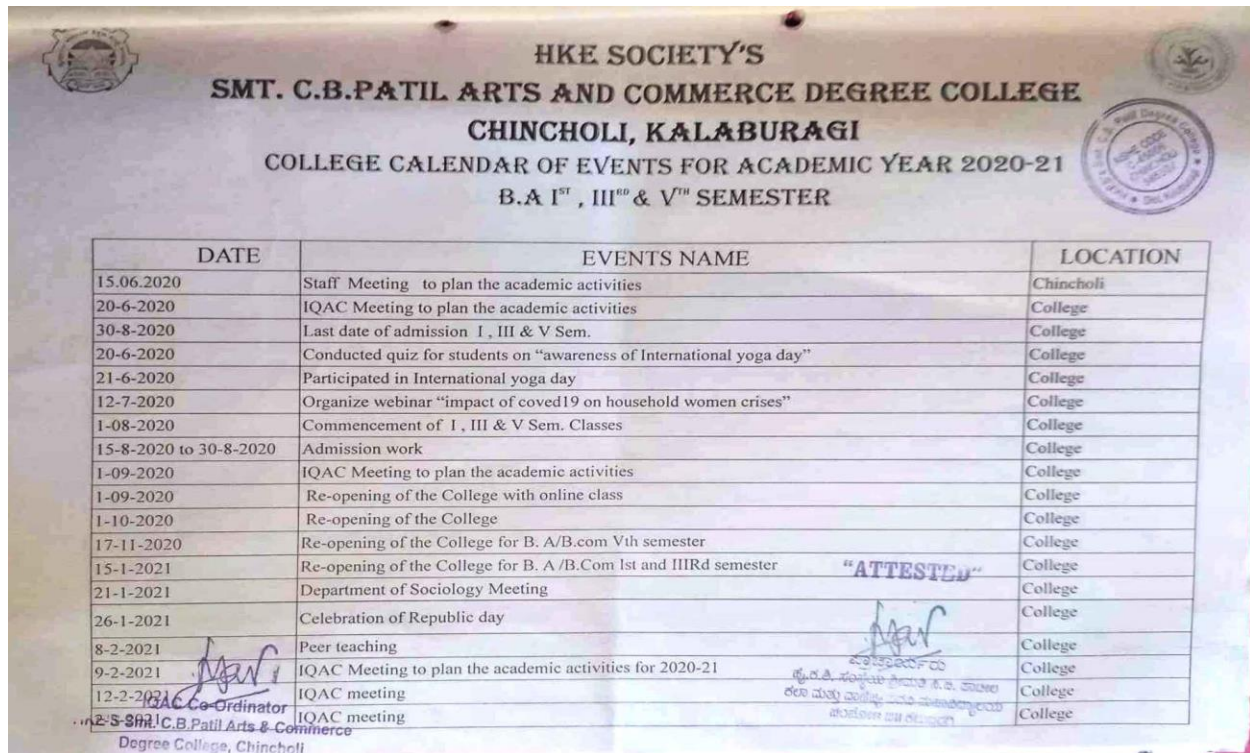 HKE SOCIETY'S
SMT. C.B.PATIL ARTS AND COMMERCE DEGREE COLLEGE
CHINCHOLI, KALABURAGI
COLLEGE CALENDAR OF EVENTS FOR ACADEMIC YEAR 2020-21
B.A IST , IIIRD & VTH SEMESTER
DATE EVENTS NAME LOCATION
15.06.2020 Staff Meeting to plan the academic activities Chincholi
20-6-2020 IQAC Meeting to plan the academic activities College
30-8-2020 Last date of admission I , III & V Sem. College
20-6-2020 Conducted quiz for students on “awareness of International yoga day” College
21-6-2020 Participated in International yoga day College
12-7-2020 Organize webinar “impact of coved19 on household women crises” College
1-08-2020 Commencement of I , III & V Sem. Classes College
15-8-2020 to 30-8-2020 Admission work College
1-09-2020 IQAC Meeting to plan the academic activities College
1-09-2020 Re-opening of the College with online class College
1-10-2020 Re-opening of the College College
17-11-2020 Re-opening of the College for B. A/B.com Vth semester College
15-1-2021 Re-opening of the College for B. A /B.Com Ist and IIIRd semester College
"ATTESTED"
21-1-2021 Department of Sociology Meeting College
26-1-2021 Celebration of Republic day College
8-2-2021 Peer teaching College
9-2-2021 IQAC Meeting to plan the academic activities for 2020-21 College
12-2-2021 IQAC meeting College
IQAC meeting College
IQAC Co-Ordinator
Smt. C.B.Patil Arts & Commerce
Degree College, Chincholi